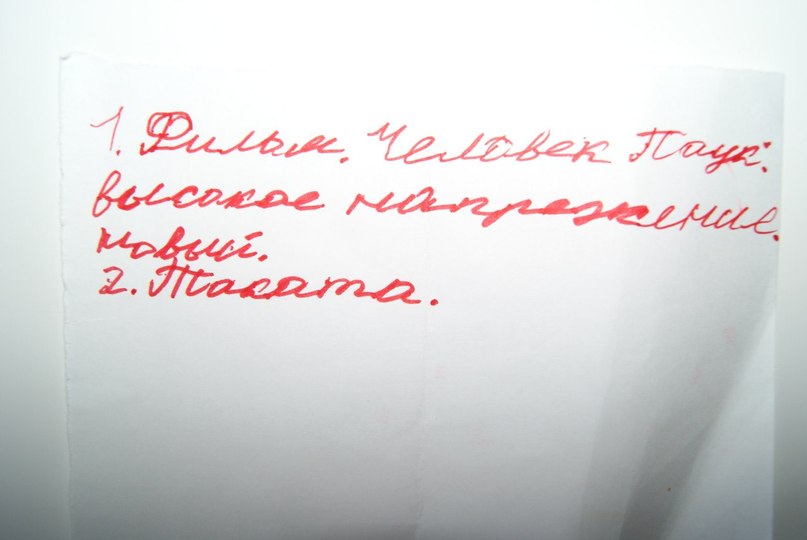 1. Фильм. Человек Паук.
высокое напрежение.
новый.
2. Таката.